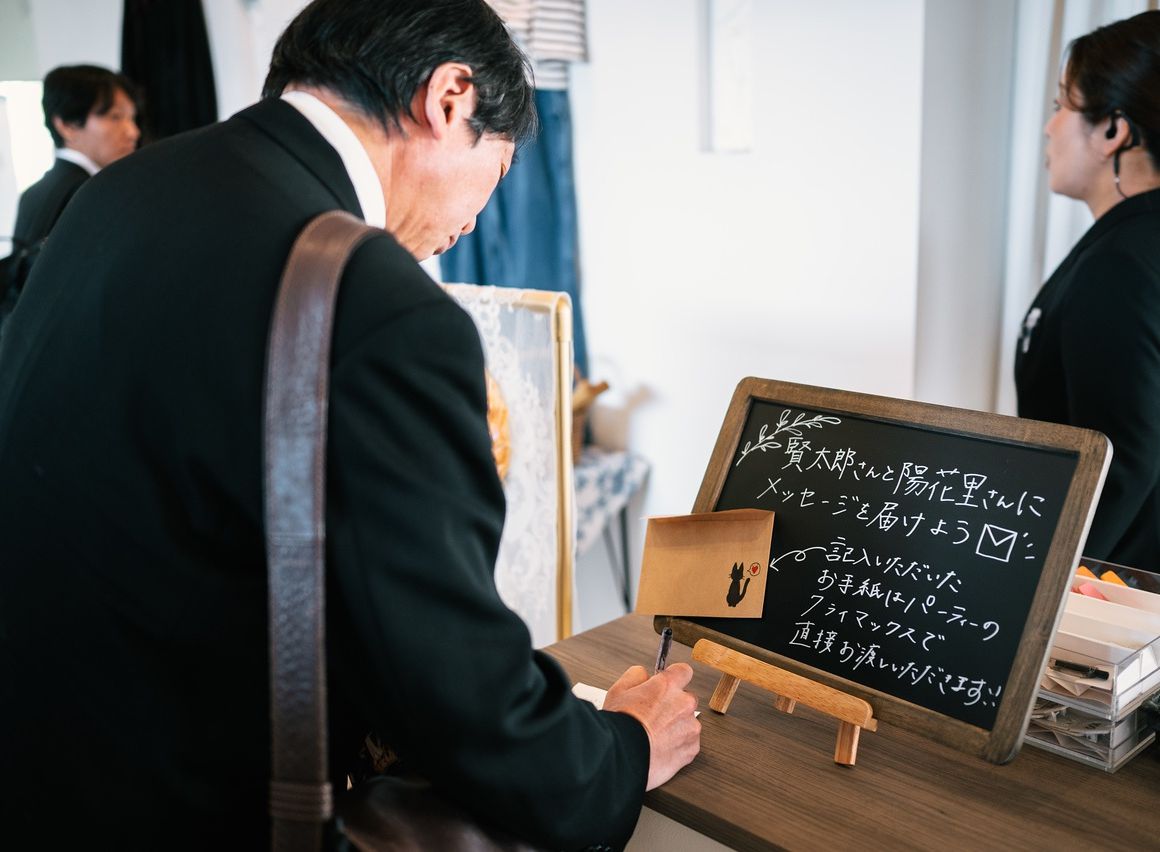 賢太郎さんと陽花里さんに
メッセージを届けよう
記入いただいた
お手紙はパーティーの
クライマックスで
直接お渡しいただきます!!